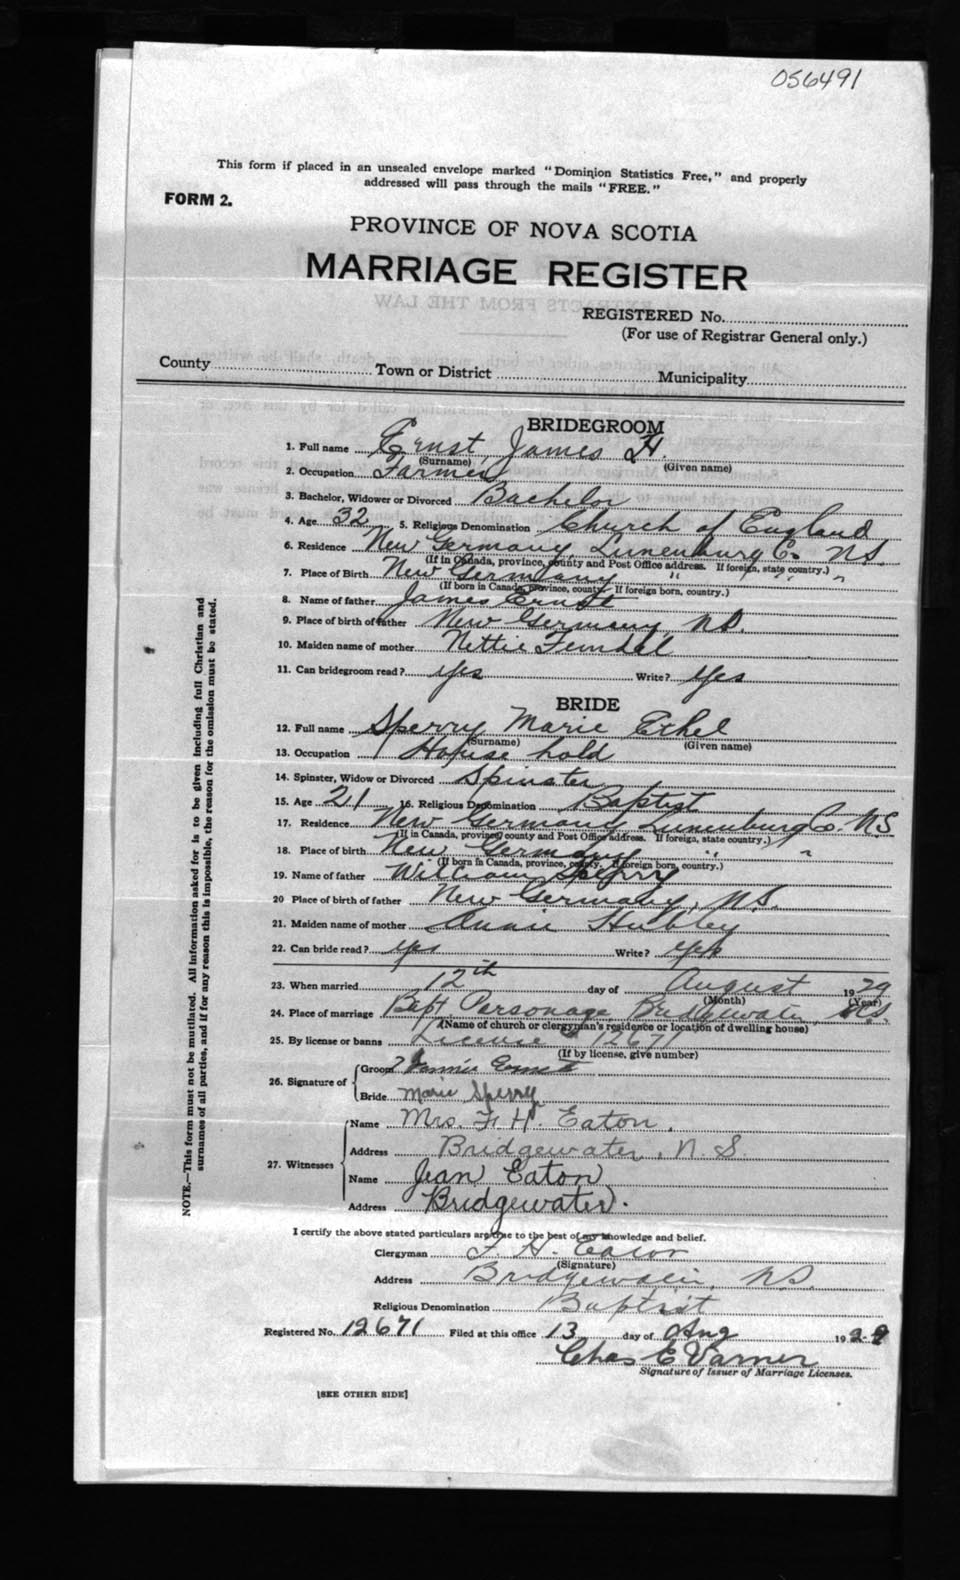 056491
This form if placed in an unsealed envelope marked "Dominion Statistics Free," and properly
addressed will pass through the mails "FREE."
FORM 2.
PROVINCE OF NOVA SCOTIA
MARRIAGE REGISTER
EXTRACTS FROM THE LAW
REGISTERED No.
(For use of Registrar General only.)
County Town or District Municipality
BRIDEGROOM
1. Full name Ernst James H.
(Surname) (Given name)
2. Occupation Farmer
3. Bachelor, Widower or Divorced Bachelor
4. Age 32 5. Religious Denomination Church of England
6. Residence New Germany, Lunenburg Co. N.S.
(If in Canada, province, county and Post Office address. If foreign, state country.)
7. Place of Birth New Germany " " "
(If born in Canada, province, county. If foreign born, country.)
8. Name of father James Ernst
9. Place of birth of father New Germany N.S.
10. Maiden name of mother Nettie
11. Can bridegroom read? yes Write? Yes
BRIDE
12. Full name Sperry Marie Ethel
(Surname) (Given name)
13. Occupation House hold
14. Spinster, Widow or Divorced Spinster
15. Age 21 16. Religious Denomination Baptist
17. Residence New Germany Lunenburg Co. N.S
(If in Canada, province, county and Post Office address. If foreign, state country.)
18. Place of birth New Germany " "
(If born in Canada, province, county. If foreign born, country.)
19. Name of father William Sperry
20 Place of birth of father New Germany, N.S.
21. Maiden name of mother Annie Hubley
22. Can bride read? yes Write? yes
23. When married 12th day of August 1929
(Month) (Year)
24. Place of marriage Bapt Parsonage Bridgewater N.S.
(Name of church or clergyman's residence or location of dwelling house)
25. By license or banns License # 12671
(If by license, give number)
26. Signature of Groom Ernst
Bride Marie Sperry
27. Witnesses Name Mrs. F. H. Eaton.
Address Bridgewater, N.S.
Name Jean Eaton
Address Bridgewater.
I certify the above stated particulars are true to the best of my knowledge and belief.
Clergyman F. H. Eaton
(Signature)
Address Bridgewater, N.S.
Religious Denomination Baptist
Registered No. 12671 Filed at this office 13 day of Aug 1929
Chas E Varner
Signature of Issuer of Marriage Licenses.
[SEE OTHER SIDE]
NOTE.—This form must not be mutilated. All information asked for is to be given including full Christian and
surnames of all parties, and if for any reason this is impossible, the reason for the omission must be stated.